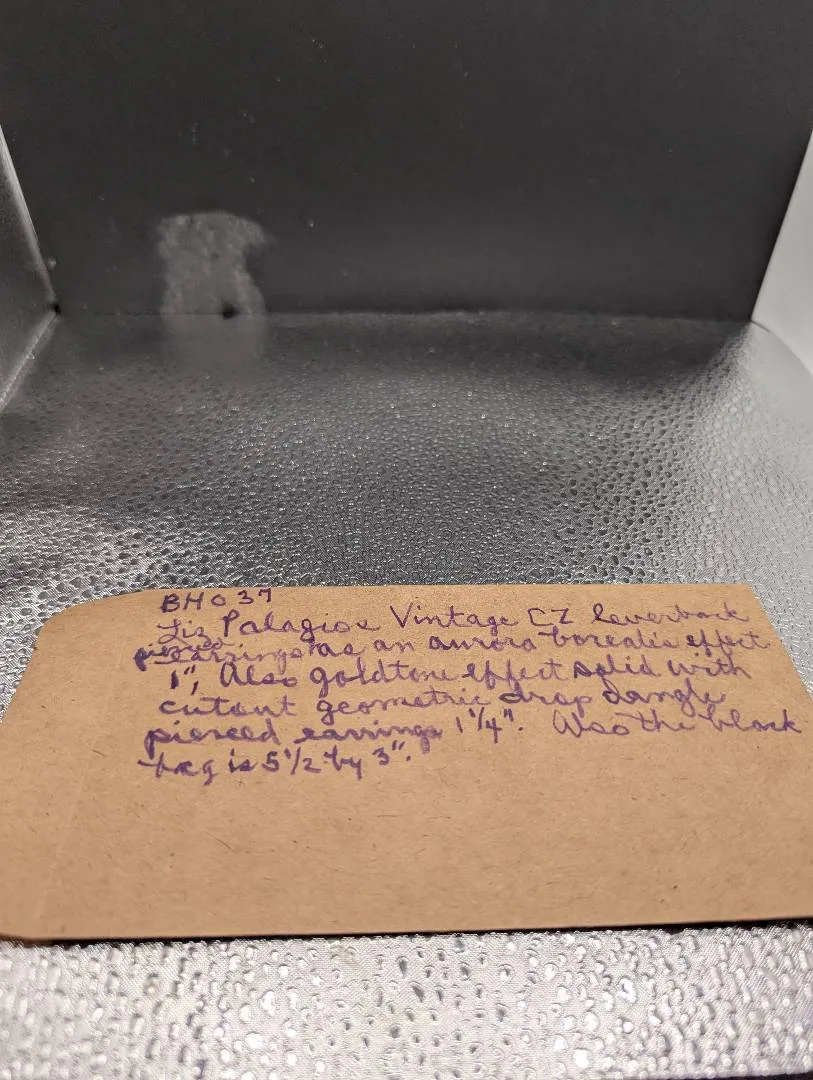 BH037
Liz Palagios Vintage CZ leverback
pierced earrings has an aurora borealis effect
1", Also goldtone effect solid with
cutout geometric drop dangle
pierced earrings 1 1/4". Also the black
bag is 5 1/2 by 3".